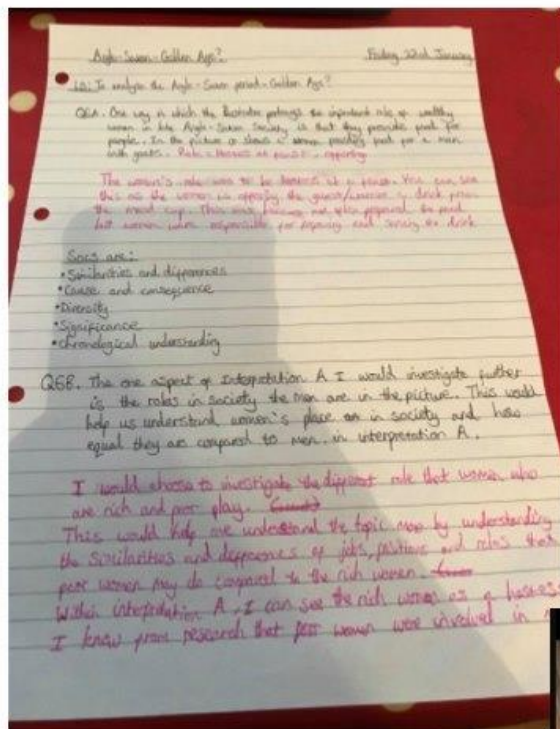 Anglo-Saxon-Golden Age? Friday 22nd January
LO: To analyse the Anglo-Saxon period-Golden Age?
Q6A. One way in which the illustrator portrays the important role of wealthy
women in late Anglo-Saxon Society is that they provide food for
people. In the picture it shows a women providing food for a man
with goats. Role = Hostess at feast, offering
The women's role was to be hostess at a feast. You can see
this as the women is offering the guest/warrior a drink from
the mead cup. This was not also prepared the food
but women were responsible for preparing and serving the drink
Socs are:
•Similarities and differences
•Cause and consequence
•Diversity
•Significance
•Chronological understanding
Q6B. The one aspect of Interpretation A I would investigate further
is the roles in society the men are in the picture. This would
help us understand women's place in society and how
equal they are compared to men in interpretation A.
I would choose to investigate the different role that women who
are rich and poor play.
This would help me understand the topic more by understanding
the similarities and differences of jobs, positions and roles that
poor women may do compared to the rich women.
Within interpretation A, I can see the rich women as a hostess
I know from research that poor women were involved in